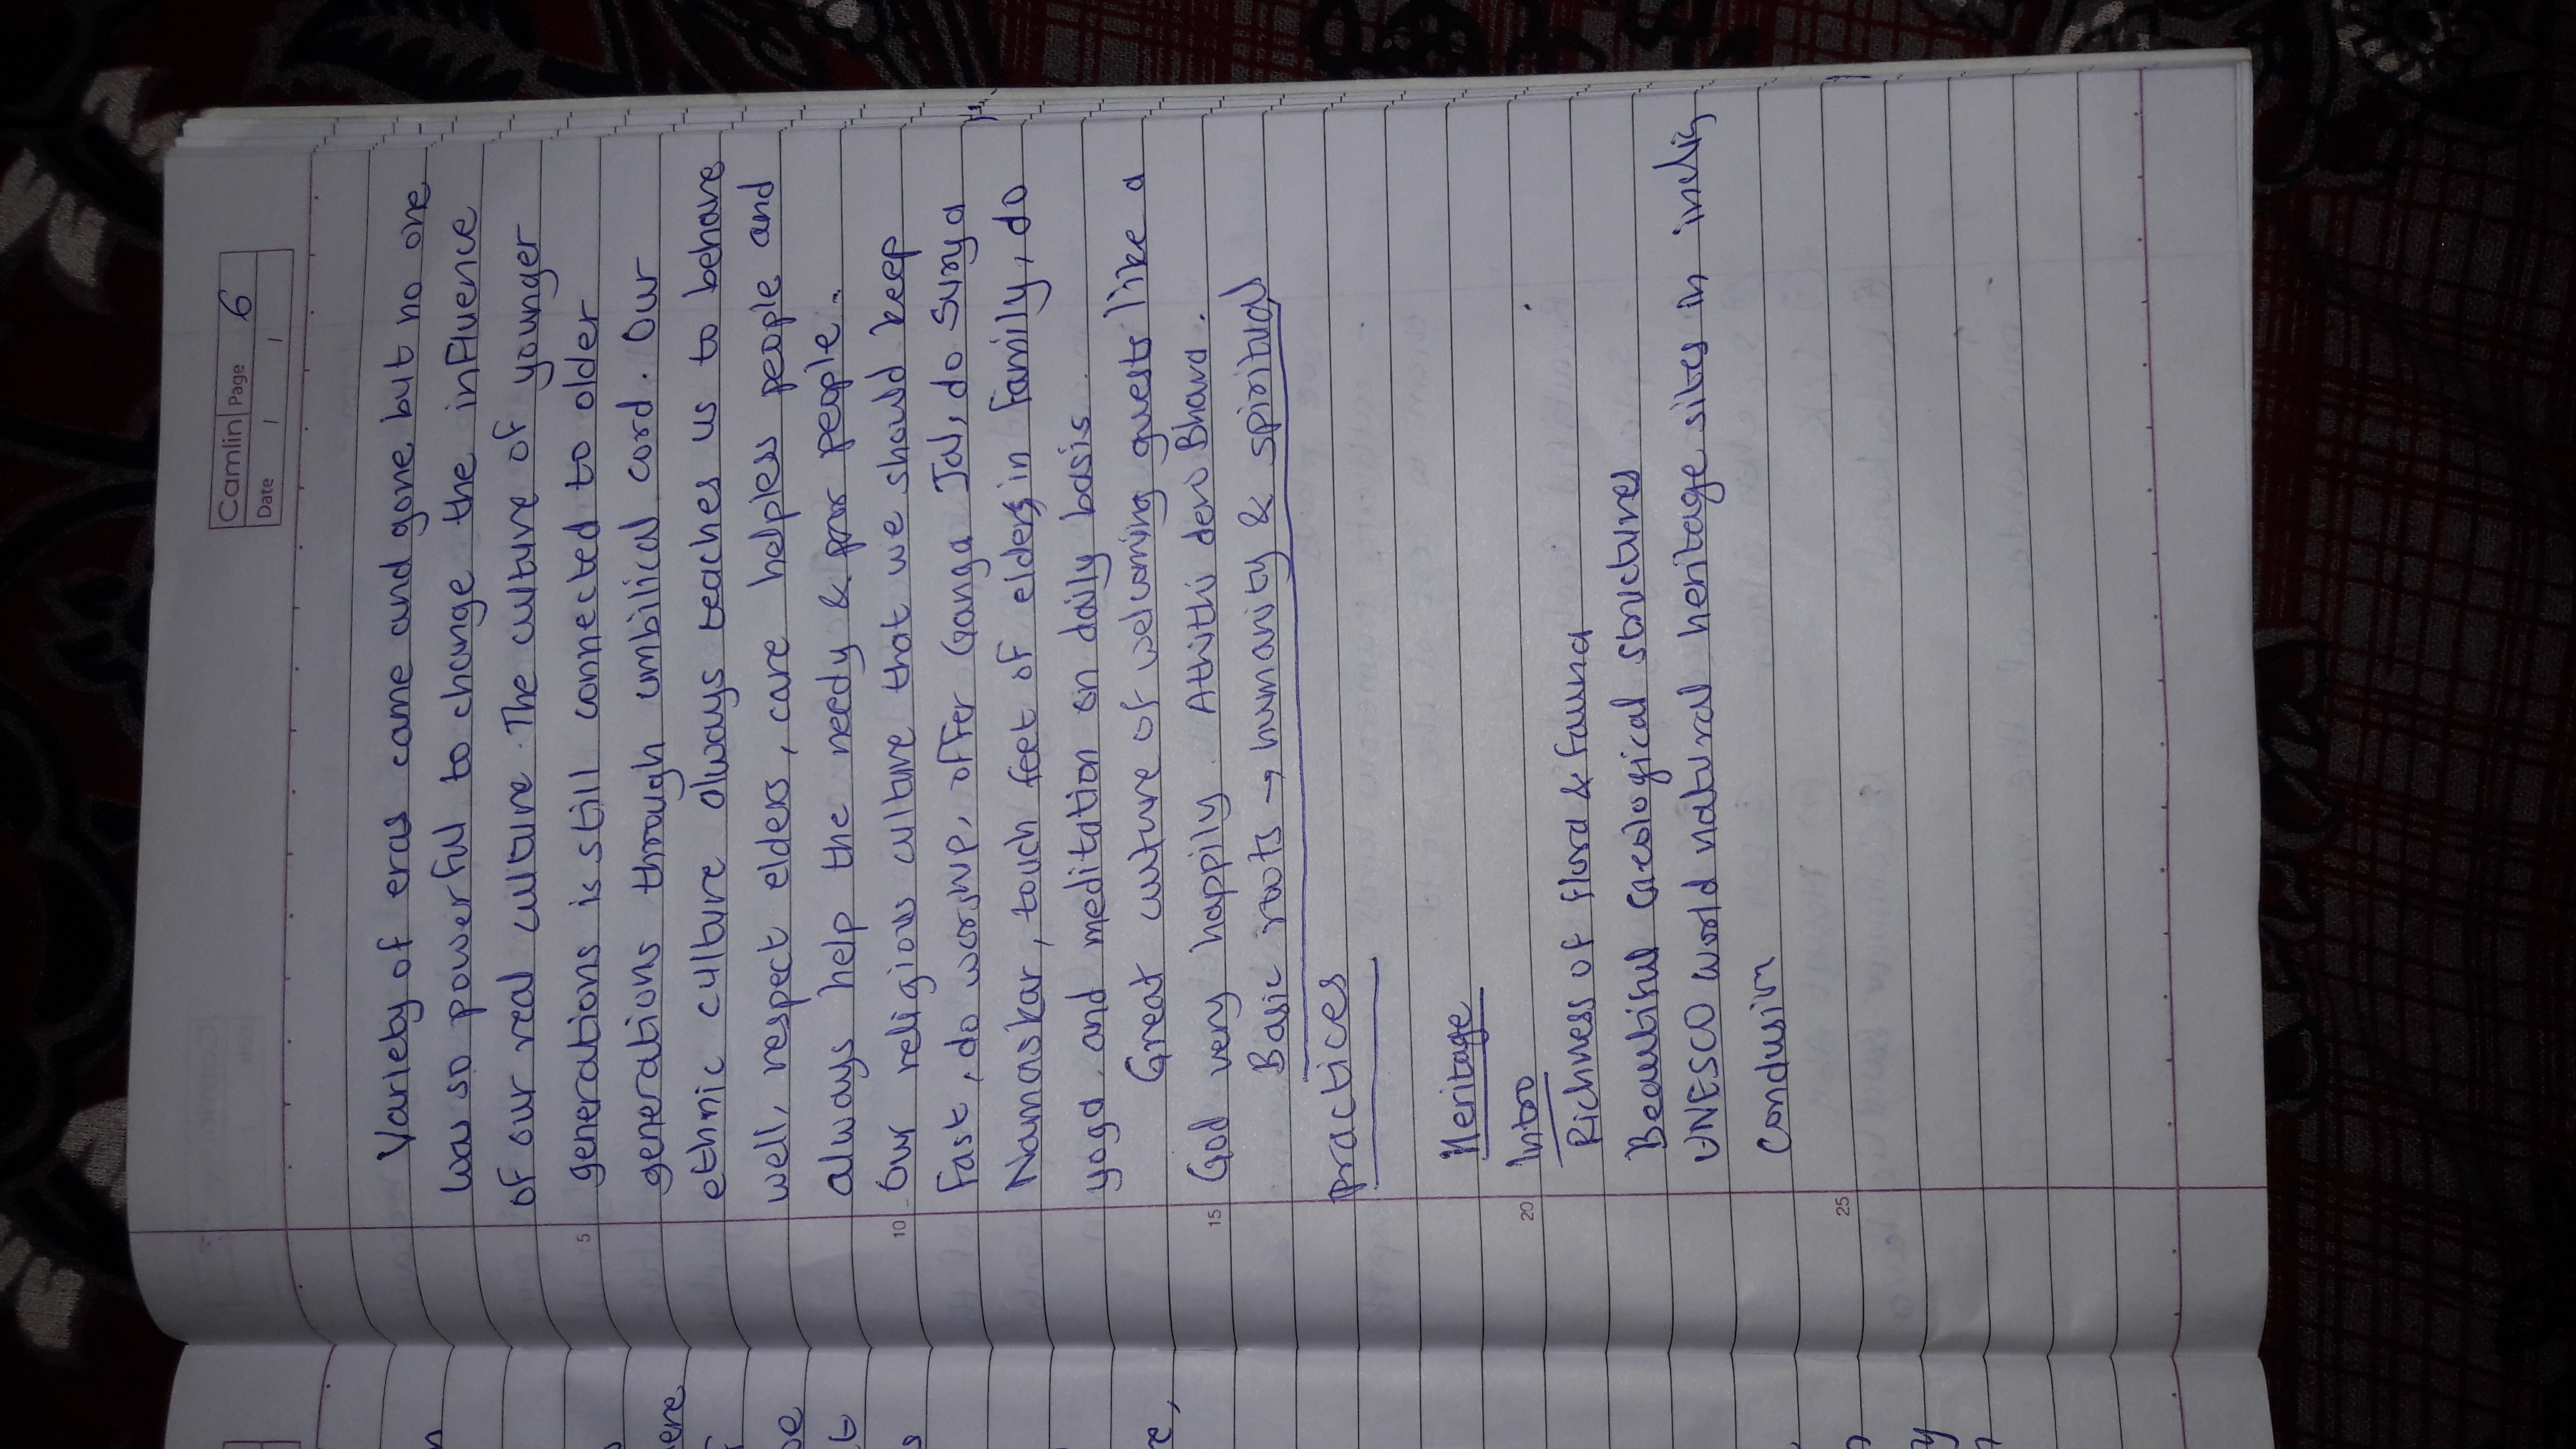 Camlin Page 6
Date / /
Variety of eras came and gone but no one
was so powerful to change the influence
of our real culture. The culture of younger
5 generations is still connected to older
generations through umbilical cord. Our
ethnic culture always teaches us to behave
well, respect elders, care helpless people and
always help the needy & poor people.
10 Our religious culture that we should keep
fast, do worship, offer Ganga Jal, do Surya
Namaskar, touch feet of elders in family, do
yoga and meditation on daily basis.
Great culture of welcoming guests like a
15 God very happily. Athithi devo Bhava.
Basic roots → humanity & spiritual
practices
Heritage
20 Intro
Richness of flora & fauna
Beautiful Geological structures
UNESCO world natural heritage sites in india
Conclusion
25